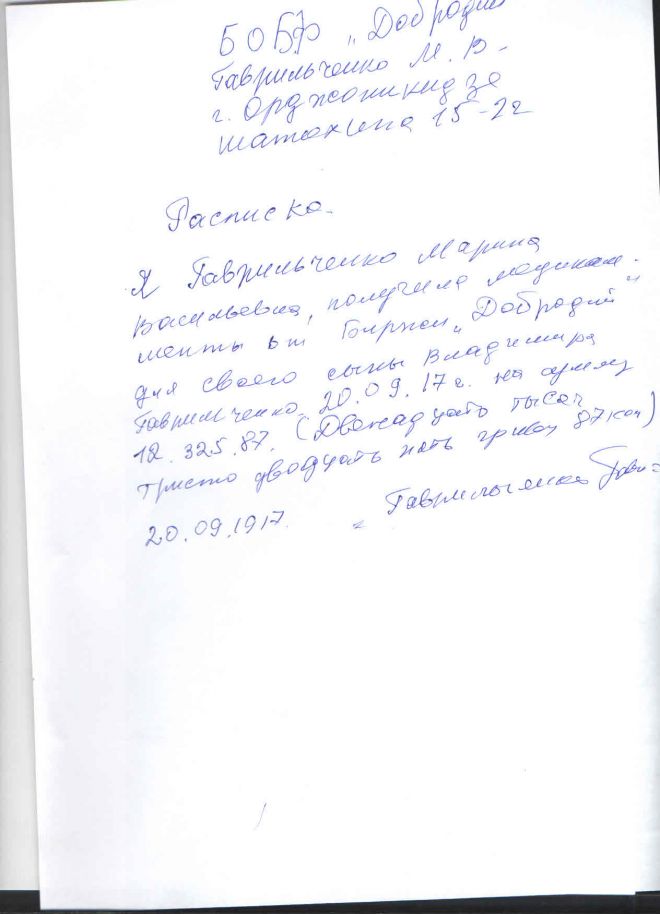 БОБФ „Добродий
Гаврильченко М. В.
г. Орджоникидзе
Шатохина 15-22
Расписка.
Я Гаврильченко Марина
Васильевна, получила медикам-
менты от Биржи „Добродий"
для своего сына Владимира
Гаврильченко 20.09.17г. на сумму
12.325.87. (Двенадцать тысяч
триста двадцать пять гривен 87 коп)
20.09.1917. Гаврильченко